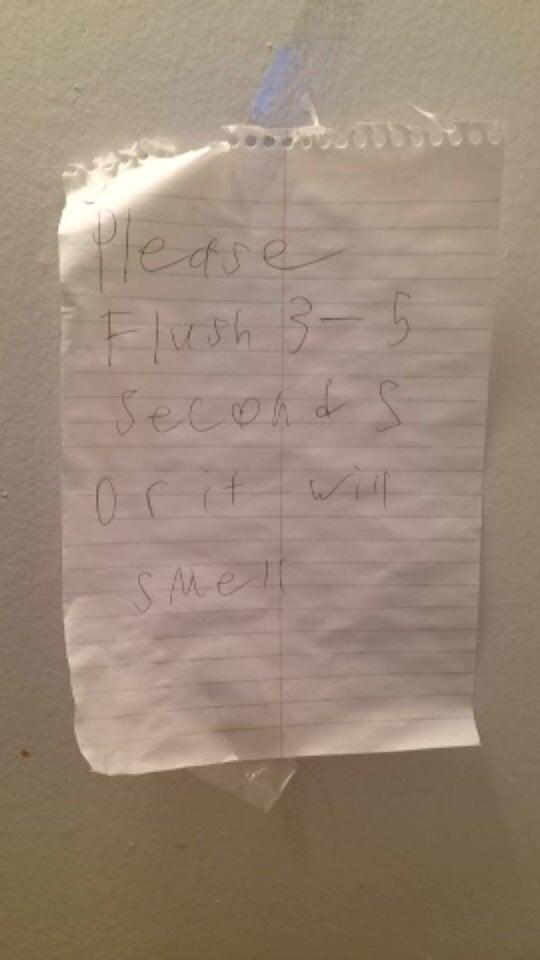 Please
Flush 3-5
seconds
Or it will
smell